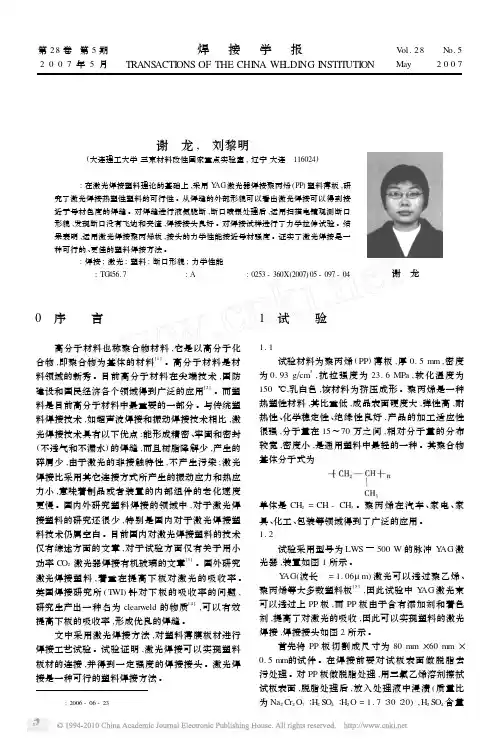 第28卷 第5期
2007年5月
焊 接 学 报
TRANSACTIONS OF THE CHINA WELDING INSTITUTION
Vol.28 No.5
May 2007
谢 龙， 刘黎明
(大连理工大学 三束材料改性国家重点实验室，辽宁 大连 116024)
:在激光焊接塑料理论的基础上，采用YAG激光器焊接聚丙烯(PP)塑料薄板，研
究了激光焊接热塑性塑料的可行性。从焊缝的外部形貌可以看出激光焊接可以得到接
近于母材色度的焊缝。对焊缝进行液氮脆断，断口喷银处理后，运用扫描电镜观测断口
形貌，发现断口没有飞边和夹渣，焊接接头良好。对焊接试样进行了力学拉伸试验。结
果表明，运用激光焊接聚丙烯板，接头的力学性能接近母材强度。证实了激光焊接是一
种可行的、更佳的塑料焊接方法。
:焊接;激光;塑料;断口形貌;力学性能
:TG456.7 :A :0253-360X(2007)05-097-04
谢 龙
0 序 言
高分子材料也称聚合物材料，它是以高分子化
合物，即聚合物为基体的材料[1]。高分子材料是材
料领域的新秀。目前高分子材料在尖端技术，国防
建设和国民经济各个领域得到广泛的应用[2]。而塑
料是目前高分子材料中最重要的一部分。与传统塑
料焊接技术，如超声波焊接和振动焊接技术相比，激
光焊接技术具有以下优点:能形成精密、牢固和密封
(不透气和不漏水)的焊缝，而且树脂降解少，产生的
碎屑少，由于激光的非接触特性，不产生污染;激光
焊接比采用其它连接方式所产生的振动应力和热应
力小，意味着制品或者装置的内部组件的老化速度
更慢。国内外研究塑料焊接的领域中，对于激光焊
接塑料的研究还很少，特别是国内对于激光焊接塑
料技术仍属空白。目前国内对激光焊接塑料的技术
仅有综述方面的文章，对于试验方面仅有关于用小
功率CO2激光器焊接有机玻璃的文章[3]。国外研究
激光焊接塑料，着重在提高下板对激光的吸收率。
英国焊接研究所(TWI)针对下板的吸收率的问题，
研究生产出一种名为clearweld的物质[4]，可以有效
提高下板的吸收率，形成优良的焊缝。
文中采用激光焊接方法，对塑料薄膜板材进行
焊接工艺试验。试验证明，激光焊接可以实现塑料
板材的连接，并得到一定强度的焊接接头。激光焊
接是一种可行的塑料焊接方法。
:2006-06-23
1 试 验
1.1
试验材料为聚丙烯(PP)薄板，厚0.5 mm，密度
为0.93 g/cm3，抗拉强度为23.6 MPa，软化温度为
150 ℃，乳白色，该材料为挤压成形。聚丙烯是一种
热塑性材料，其比重低，成品表面硬度大，弹性高，耐
热性、化学稳定性、绝缘性良好，产品的加工适应性
很强，分子量在15～70万之间，相对分子量的分布
较宽，密度小，是通用塑料中最轻的一种。其聚合物
基体分子式为
-[CH2-CH]-n
CH3
单体是CH2=CH-CH3。聚丙烯在汽车、家电、家
具、化工、包装等领域得到了广泛的应用。
1.2
试验采用型号为LWS—500 W的脉冲YAG激
光器，装置如图1所示。
YAG(波长 =1.06μm)激光可以透过聚乙烯、
聚丙烯等大多数塑料板[5]，因此试验中YAG激光束
可以透过上PP板，而PP板由于含有添加剂和着色
剂，提高了对激光的吸收，因此可以实现塑料的激光
焊接，焊接接头如图2所示。
首先将PP板切割成尺寸为80 mm×60 mm×
0.5 mm的试件。在焊接前要对试板表面做脱脂去
污处理。对PP板做脱脂处理，用三氯乙烯溶剂擦拭
试板表面，脱脂处理后，放入处理液中浸渍(质量比
为Na2Cr2O7:H2SO4:H2O=1.7:30:20)，H2SO4含量
© 1994-2010 China Academic Journal Electronic Publishing House. All rights reserved. http://www.cnki.net